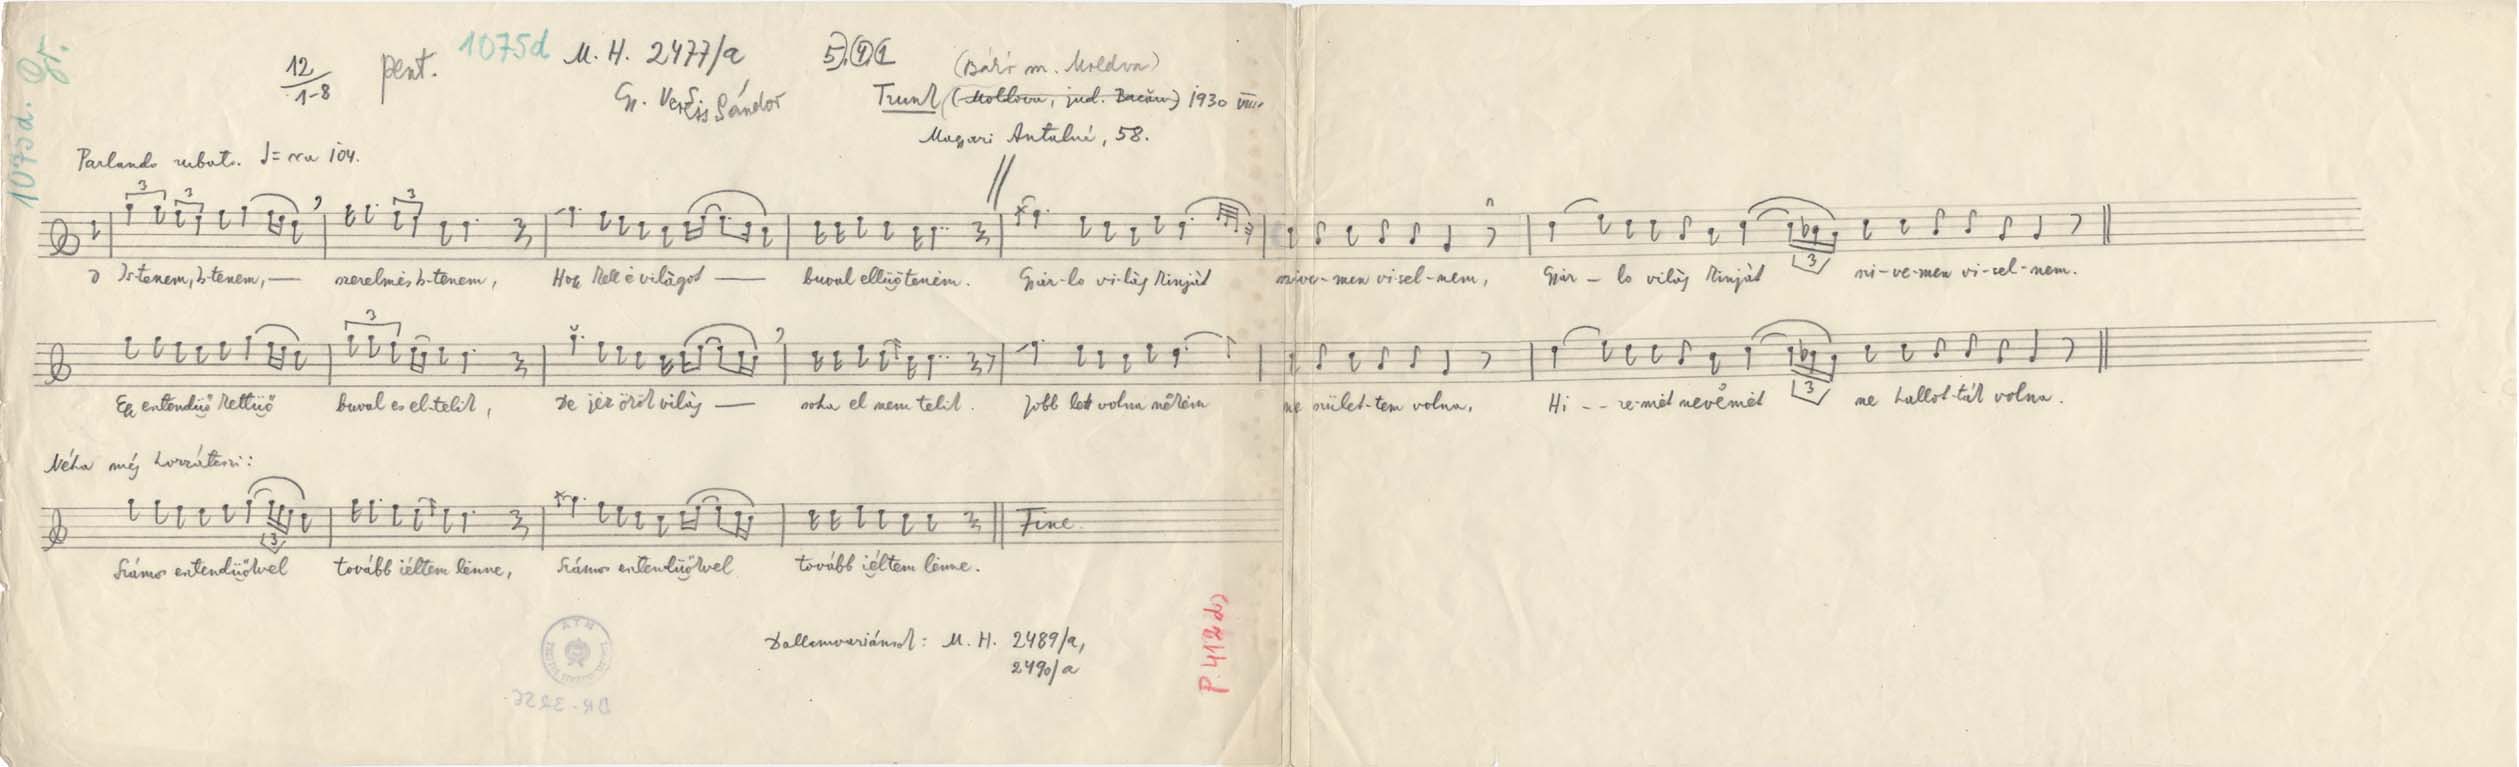 12/1-8 pent. 1075d M. H. 2477/a 5 4 1
(Bákó m. Moldva)
Gy. Veress Sándor Trunk (Moldova, jud. Bacău) 1930 VIII.
Magyari Antalné, 58.
1075d. Gr.
Parlando rubato. = ca 104.
3 3 3
Is-tenem, Is-tenem, — szerelmés Is-tenem, Hogy kell é világot — buval ellüöteném. Gyár-lo vi-lág kinját szive-men visel-nem, Gyár - lo világ kinját szi-ve-men vi-sel-nem.
3
3 3
Egy esztendüő kettüő buval es el-telik, De jéz öröl világ — soha el nem telik. Jobb lett volna nékém ne szület-tem volna, Hi - - re-mét nevémét ne hallot-ták volna.
Néha még hozzáteszi:
3 Fine.
Számos esztendüőkvel tovább iéltem lenne, Számos esztendüőkvel tovább iéltem lenne.
Dallamvariánsok: M. H. 2489/a,
2490/a
P. 412d)